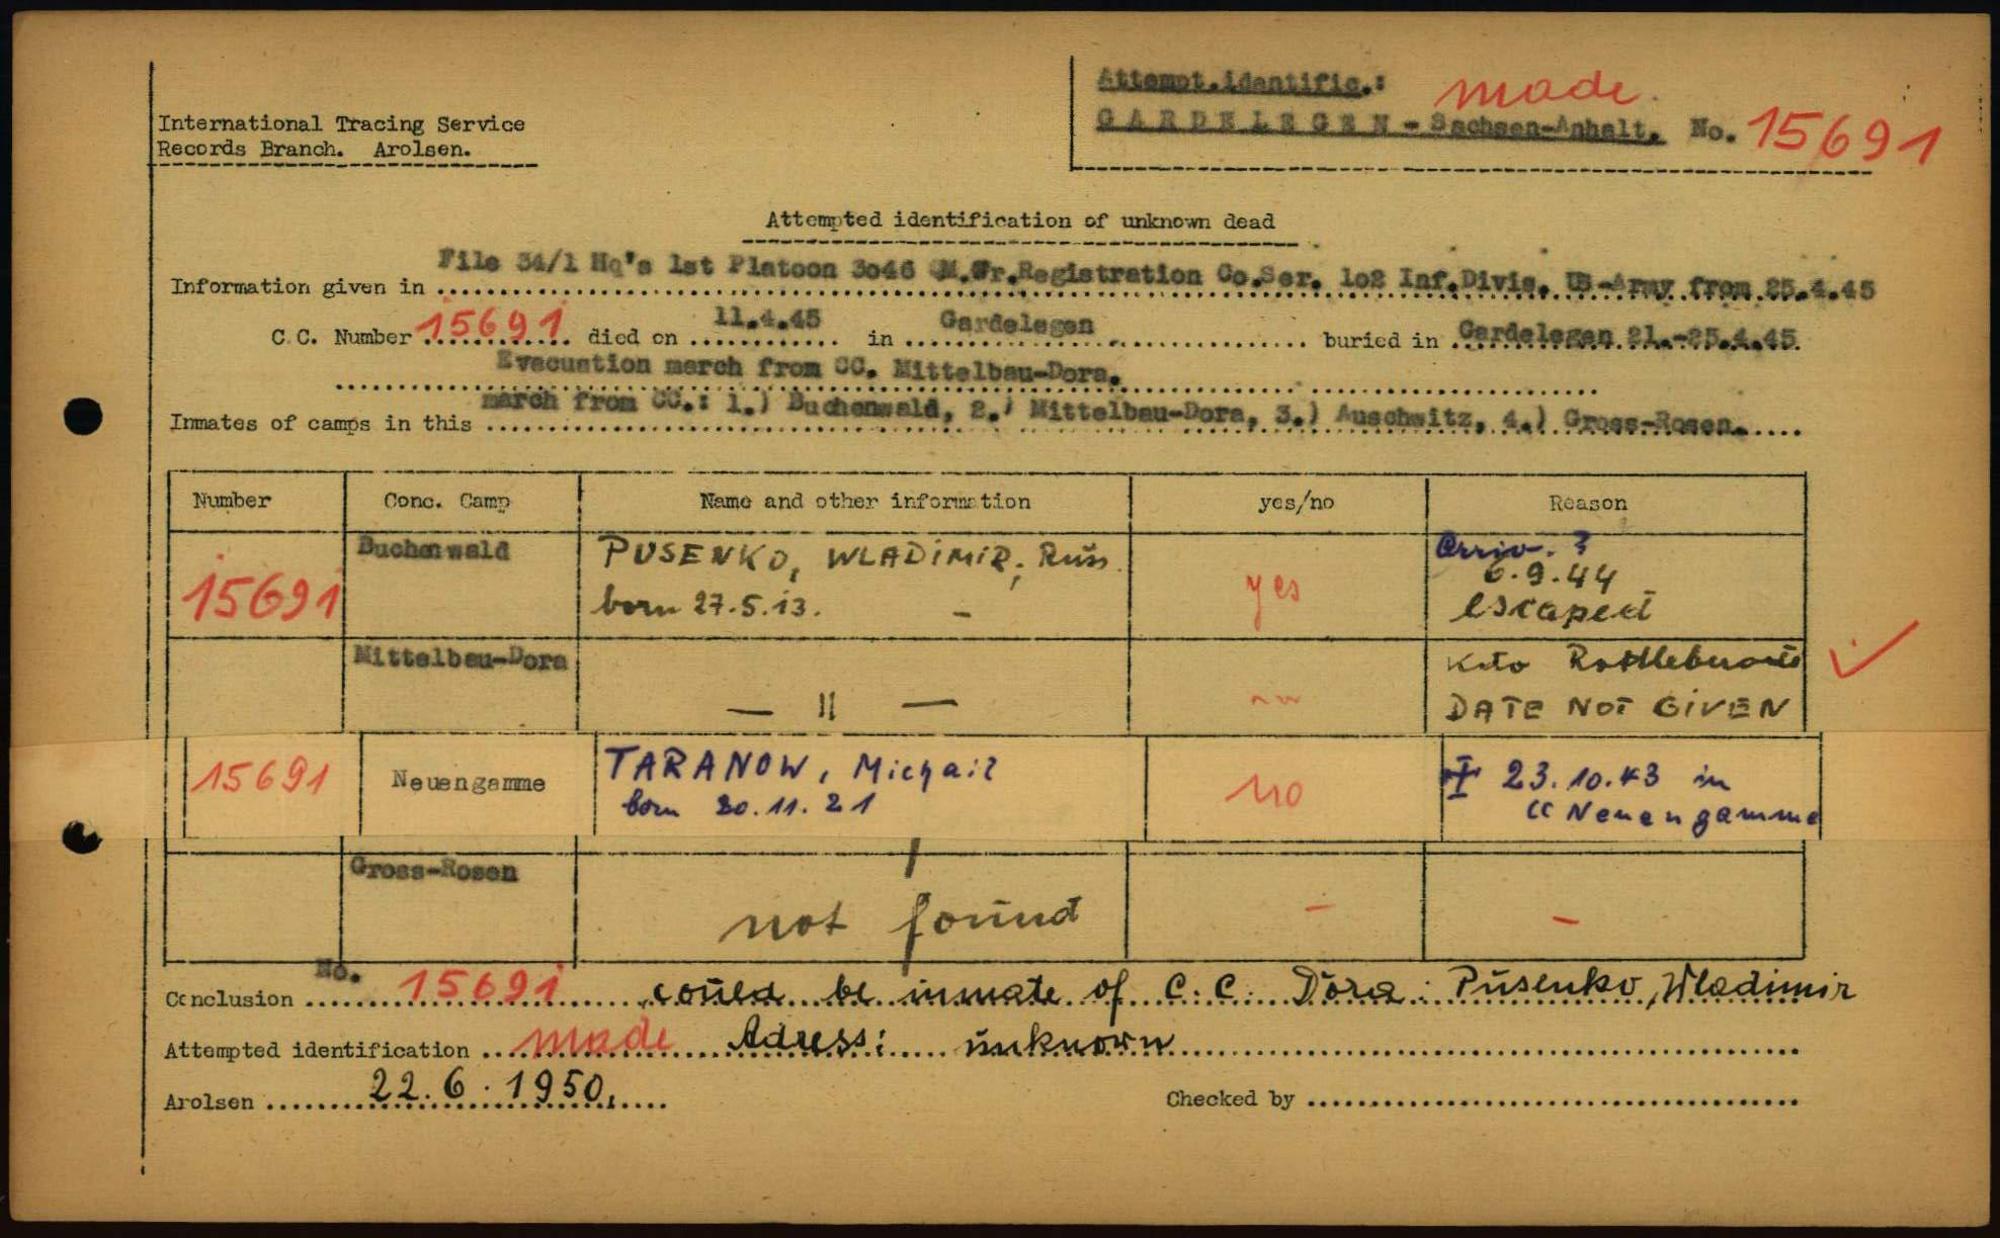 Attempt.identific.: made
GARDELEGEN - Sachsen-Anhalt. No. 15691
International Tracing Service
Records Branch. Arolsen.
Attempted identification of unknown dead
Information given in File 34/1 Hq's 1st Platoon 3o46 QM.Gr.Registration Co.Ser. 1o2 Inf.Divis. US-Army from 25.4.45
C.C. Number 15691 died on 11.4.45 in Gardelegen buried in Gardelegen 21.-25.4.45
Evacuation march from CC. Mittelbau-Dora.
Inmates of camps in this march from CC.: 1.) Buchenwald, 2.) Mittelbau-Dora, 3.) Auschwitz, 4.) Gross-Rosen.
Number Conc. Camp Name and other information yes/no Reason
15691 Buchenwald PUSENKO, WLADIMIR; Russ. yes Arriv. ?
born 27.5.13. - 6.9.44
escaped
Mittelbau-Dora — " — Kdo
DATE NOT GIVEN
15691 Neuengamme TARANOW, Michail no 23.10.43 in
born 20.11.21 CC Neuengamme
Gross-Rosen not found - -
Conclusion No. 15691 could be inmate of C.C. Dora: Pusenko, Wladimir
Attempted identification made Adress: unknown
Arolsen 22.6.1950, Checked by